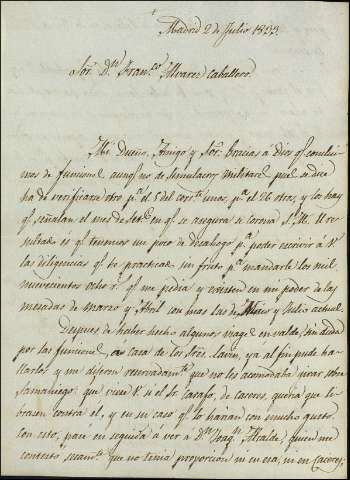 Madrid 2 de Julio 1833.
Sor. Dn. Franco. Alvarez Caballero.
Mi Dueño, Amigo y Sor. Gracias a Dios qe. conclui
mos de funciones aunqe. no de simulacros militares pues se dice
ha de verificarse otro pa. el 5 del corrte. unos, pa. el 26 otros, y los hay
qe. señalan el mes de en qe. se asegura se corona S. M. El re
sultado es qe. tenemos un poco de desahogo pa. poder escrivir a V.
las diligencias qe. he practicado sin fruto pa. mandarle los mil
nuevecientos ocho rs. qe. me pedia y existen en mi poder de las
mesadas de Marzo y Abril con mas las de y Julio actual.
Despues de haber hecho algunos viages en valde, sin duda
por las funciones, a casa de los Sres. ya al fin pude ha
llarlos y me dijeron reservadamte. que no les acomodaba girar sobre
Samaniego: que viese V. si el Sr. Carafo, de Caceres, queria que li
brasen contra él, y en su caso qe. lo harian con mucho gusto.
Con esto, pasé en seguida á ver a Dn. Joaqn. Alcalde, quien me
contestó secamte. que no tenia proporcion ni en esa, ni en Caceres;